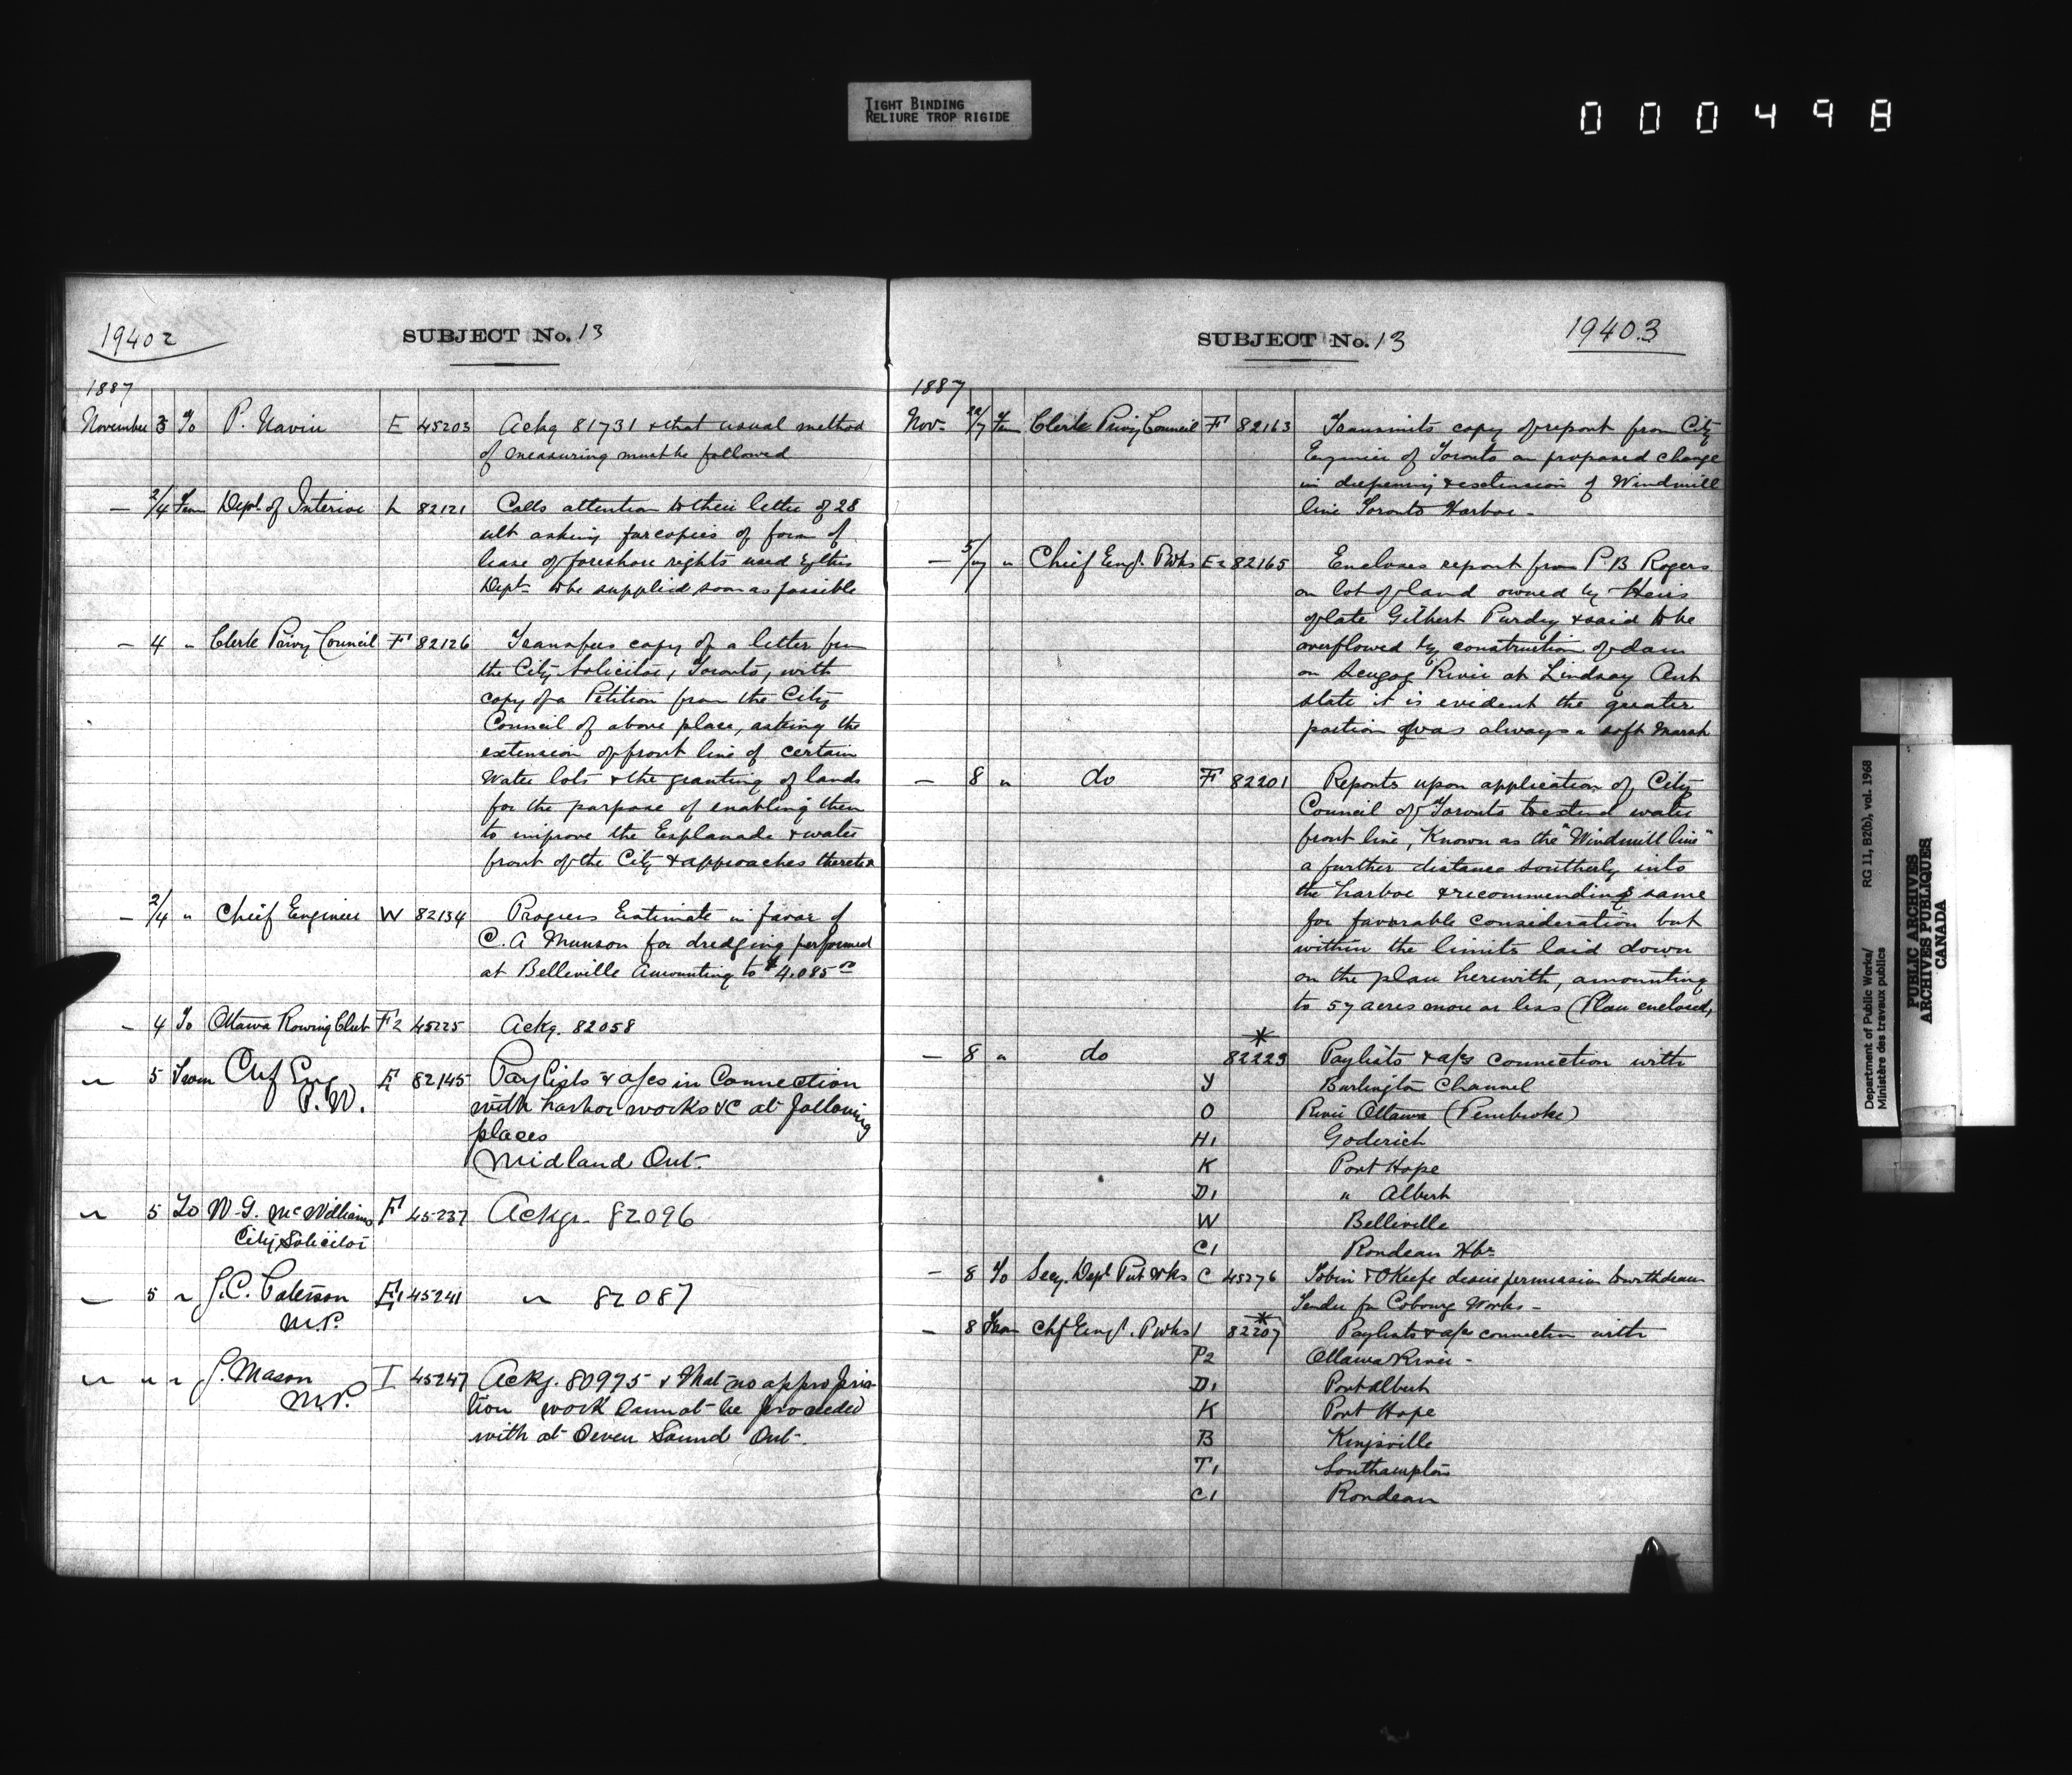 TIGHT BINDING
RELIURE TROP RIGIDE
000498
19402
SUBJECT No. 13
1887
November 3 To P. Navin E 45203 Ackg 81731 & that usual method
of measuring must be followed
— 2/4 From Dept of Interior L 82121 Calls attention to their letter of 28
ult asking for copies of form of
lease of foreshore rights used by this
Dept to be supplied soon as possible
— 4 " Clerk Privy Council F 82126 Transfers copy of a letter from
the City Solicitor, Toronto, with
copy of a Petition from the City
Council of above place, asking the
extension of front line of certain
Water lots & the granting of lands
for the purpose of enabling them
to improve the Esplanade & water
front of the City & approaches thereto
— 2/4 " Chief Engineer W 82134 Progress Estimate in favor of
C. A Munson for dredging performed
at Belleville amounting to $4.085
— 4 To Ottawa Rowing Club F2 45225 Ackg. 82058
" 5 From Chf Eng E 82145 Paylists & a/cs in Connection
P. W. with harbor works &c at following
places
Midland Ont.
" 5 To W. G. McWilliams F 45237 Ackg. 82096
City Solicitor
— 5 " J.C. Paterson E1 45241 " 82087
M.P.
" " " J. Mason I 45247 Ackg. 80975 & that no appropria-
M.P. tion work cannot be proceeded
with at Owen Sound Ont.
SUBJECT No. 13
19403
1887
Nov. 22/7 Fm Clerk Privy Council F 82163 Transmits copy of report from City
Engineer of Toronto on proposed change
in deepening & extension of Windmill
line Toronto Harbor —
— 5/7 " Chief Engr. P Wks E2 82165 Encloses report from P B Rogers
on lot of land owned by Heirs
of late Gilbert Purdy & said to be
overflowed by construction of dam
on Scugog River at Lindsay Ont
state it is evident the greater
portion was always a soft marsh
— 8 " do F 82201 Reports upon application of City
Council of Toronto to extend water
front line, Known as the "Windmill line"
a further distance southerly into
the harbor & recommending same
for favorable consideration but
within the limits laid down
on the plan herewith, amounting
to 57 acres more or less (Plan enclosed,
*
— 8 " do 82223 Paylists & a/cs connection with
Y Burlington Channel
O River Ottawa (Pembroke)
H1 Goderich
K Port Hope
D1 " Albert
W Belleville
C1 Rondeau Hbr
— 8 To Secy. Dept Pub Wks C 45276 Tobin & O'Keefe desire permission to withdraw
Tender for Cobourg Works —
*
— 8 From Chf Engr. P Wks 82207 Paylists & a/cs connection with
P2 Ottawa River —
D1 Port Albert
K Port Hope
B Kingsville
T1 Southampton
C1 Rondeau
Department of Public Works/ RG 11, B2(b), vol. 1968
Ministère des travaux publics
PUBLIC ARCHIVES
ARCHIVES PUBLIQUES
CANADA